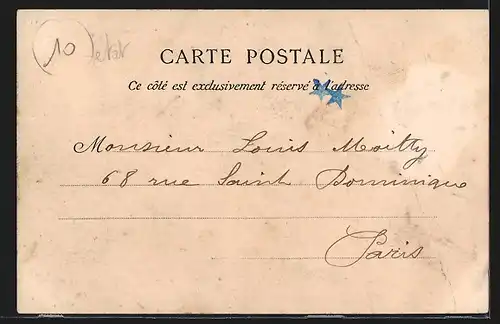 10 l'état
CARTE POSTALE
Ce côté est exclusivement réservé à l'adresse
Monsieur Louis Moitty
68 rue Saint Dominique
Paris